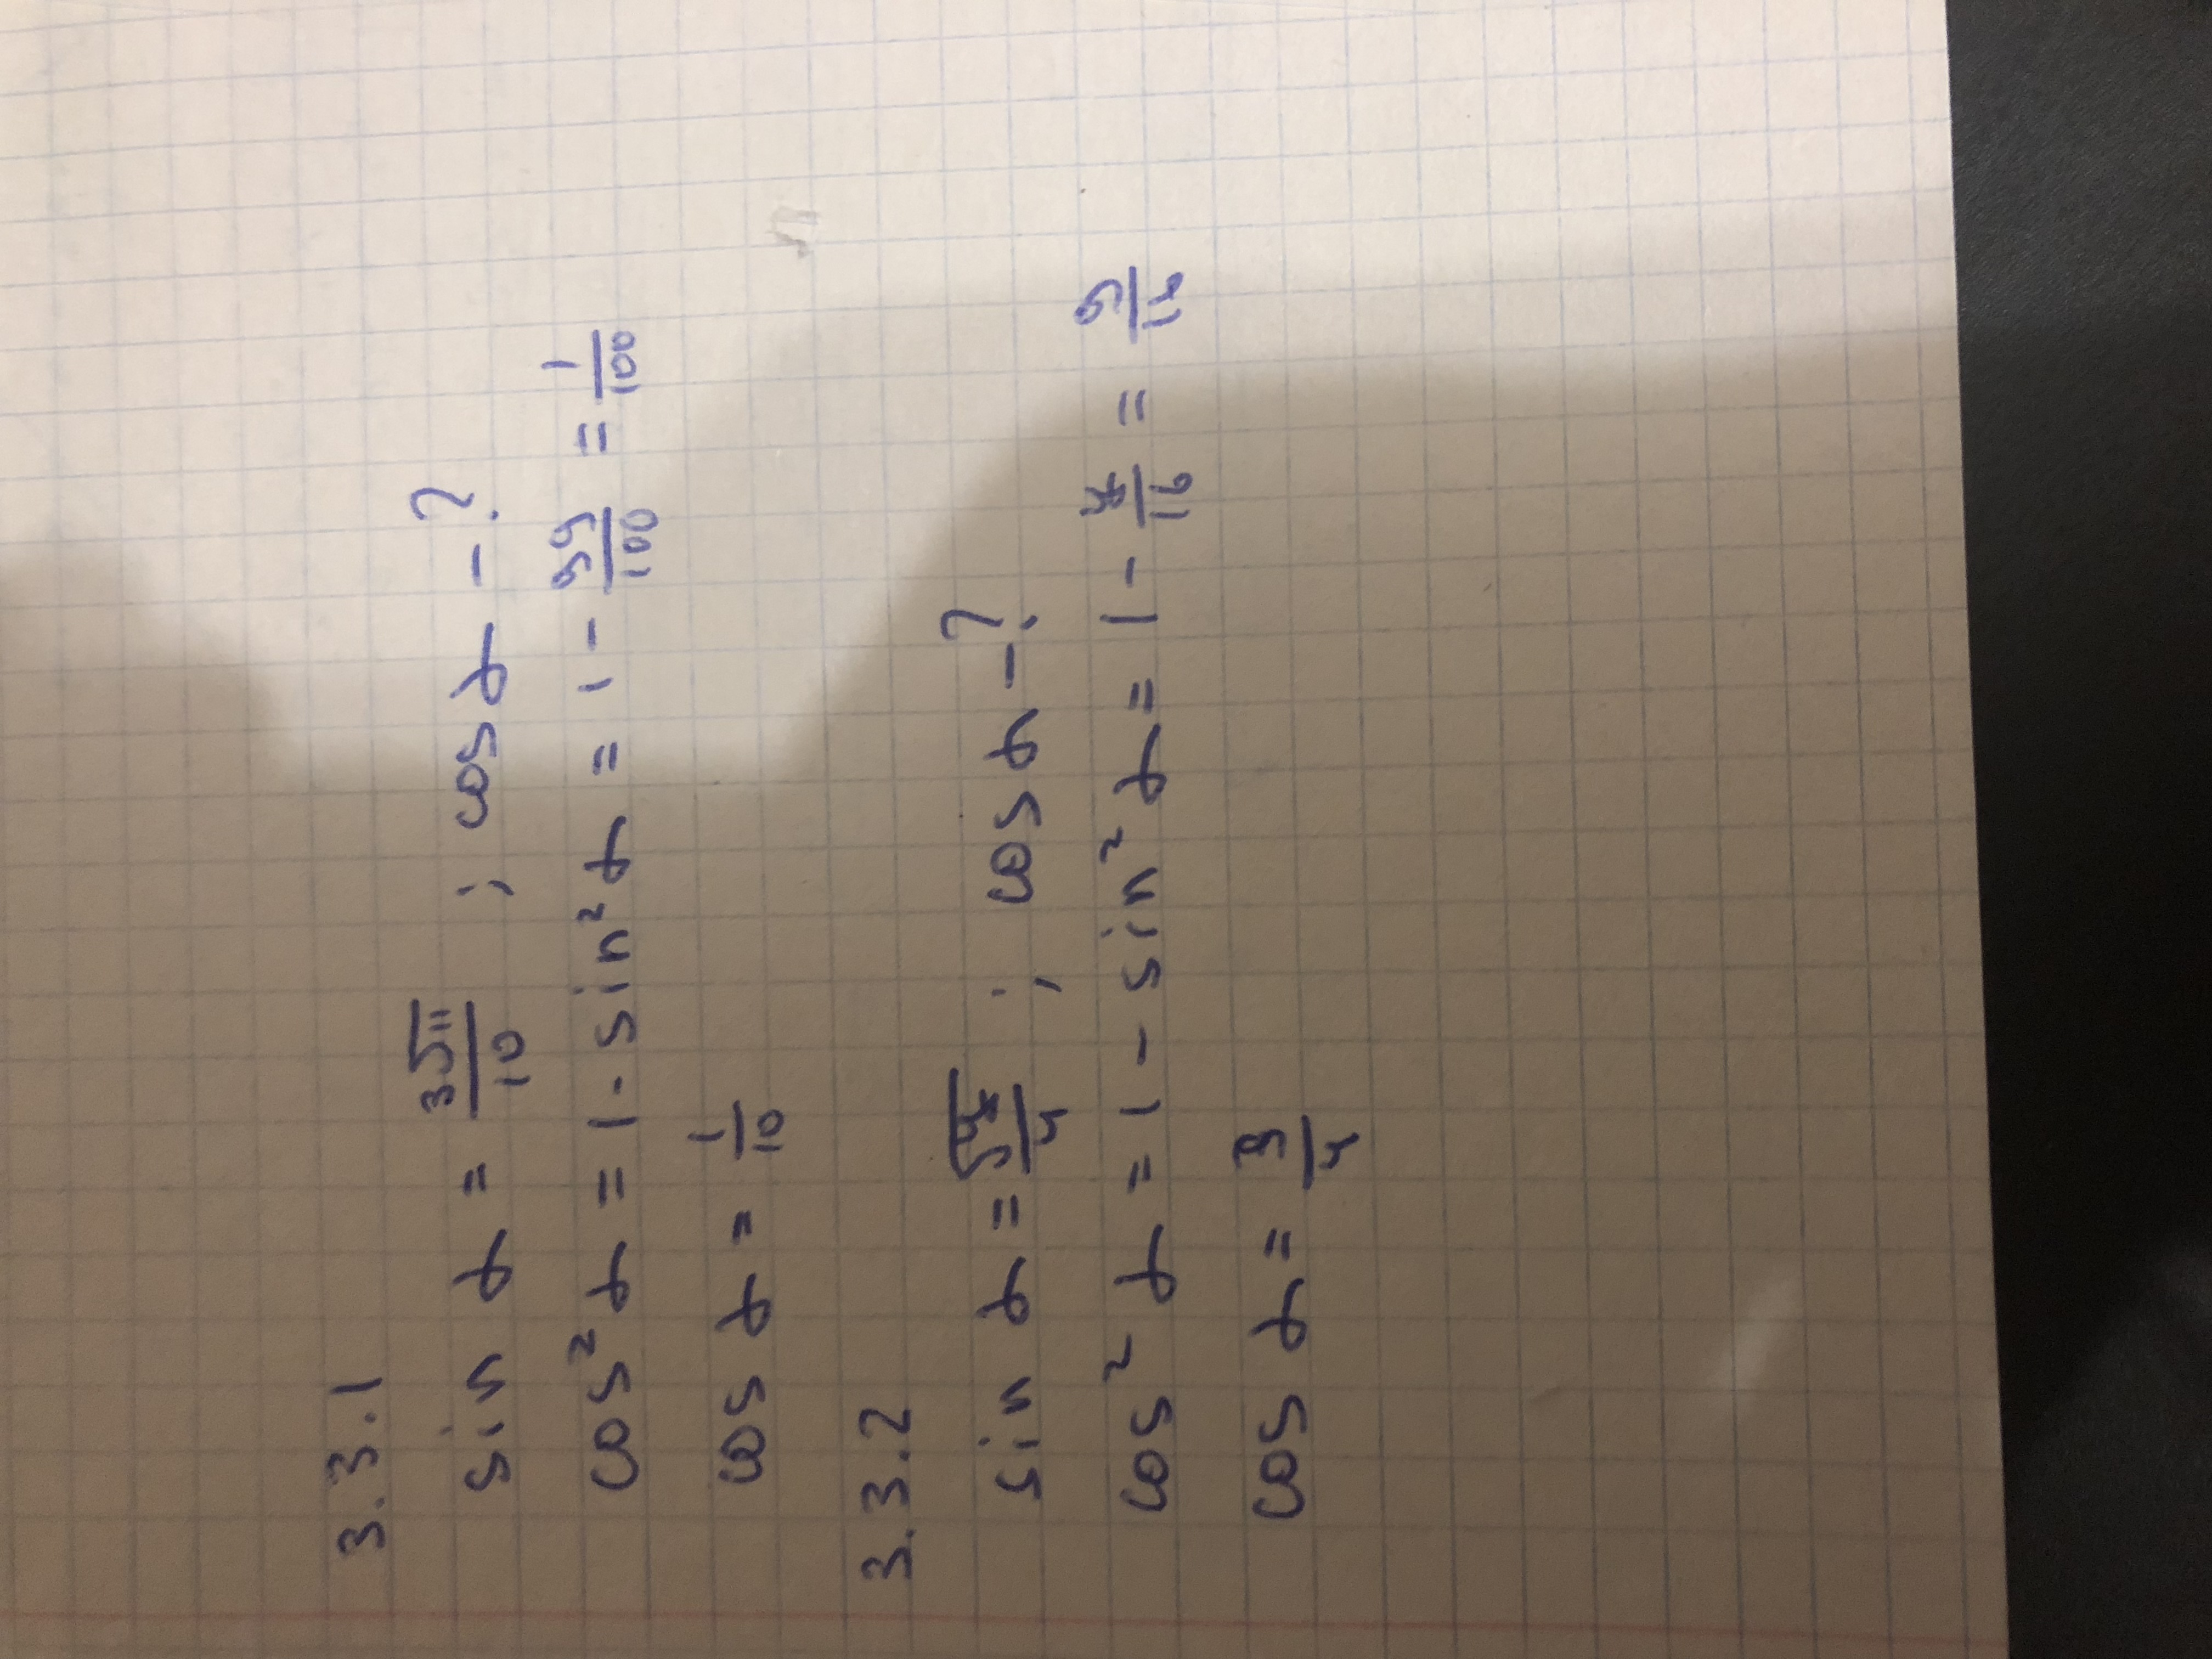 3.3.1
sin t = 3√11/10 ; cos t - ?
cos² t = 1 - sin² t = 1 - 99/100 = 1/100
cos t = 1/10
3.3.2
sin t = √7/4 ; cos t - ?
cos² t = 1 - sin² t = 1 - 7/16 = 9/16
cos t = 3/4